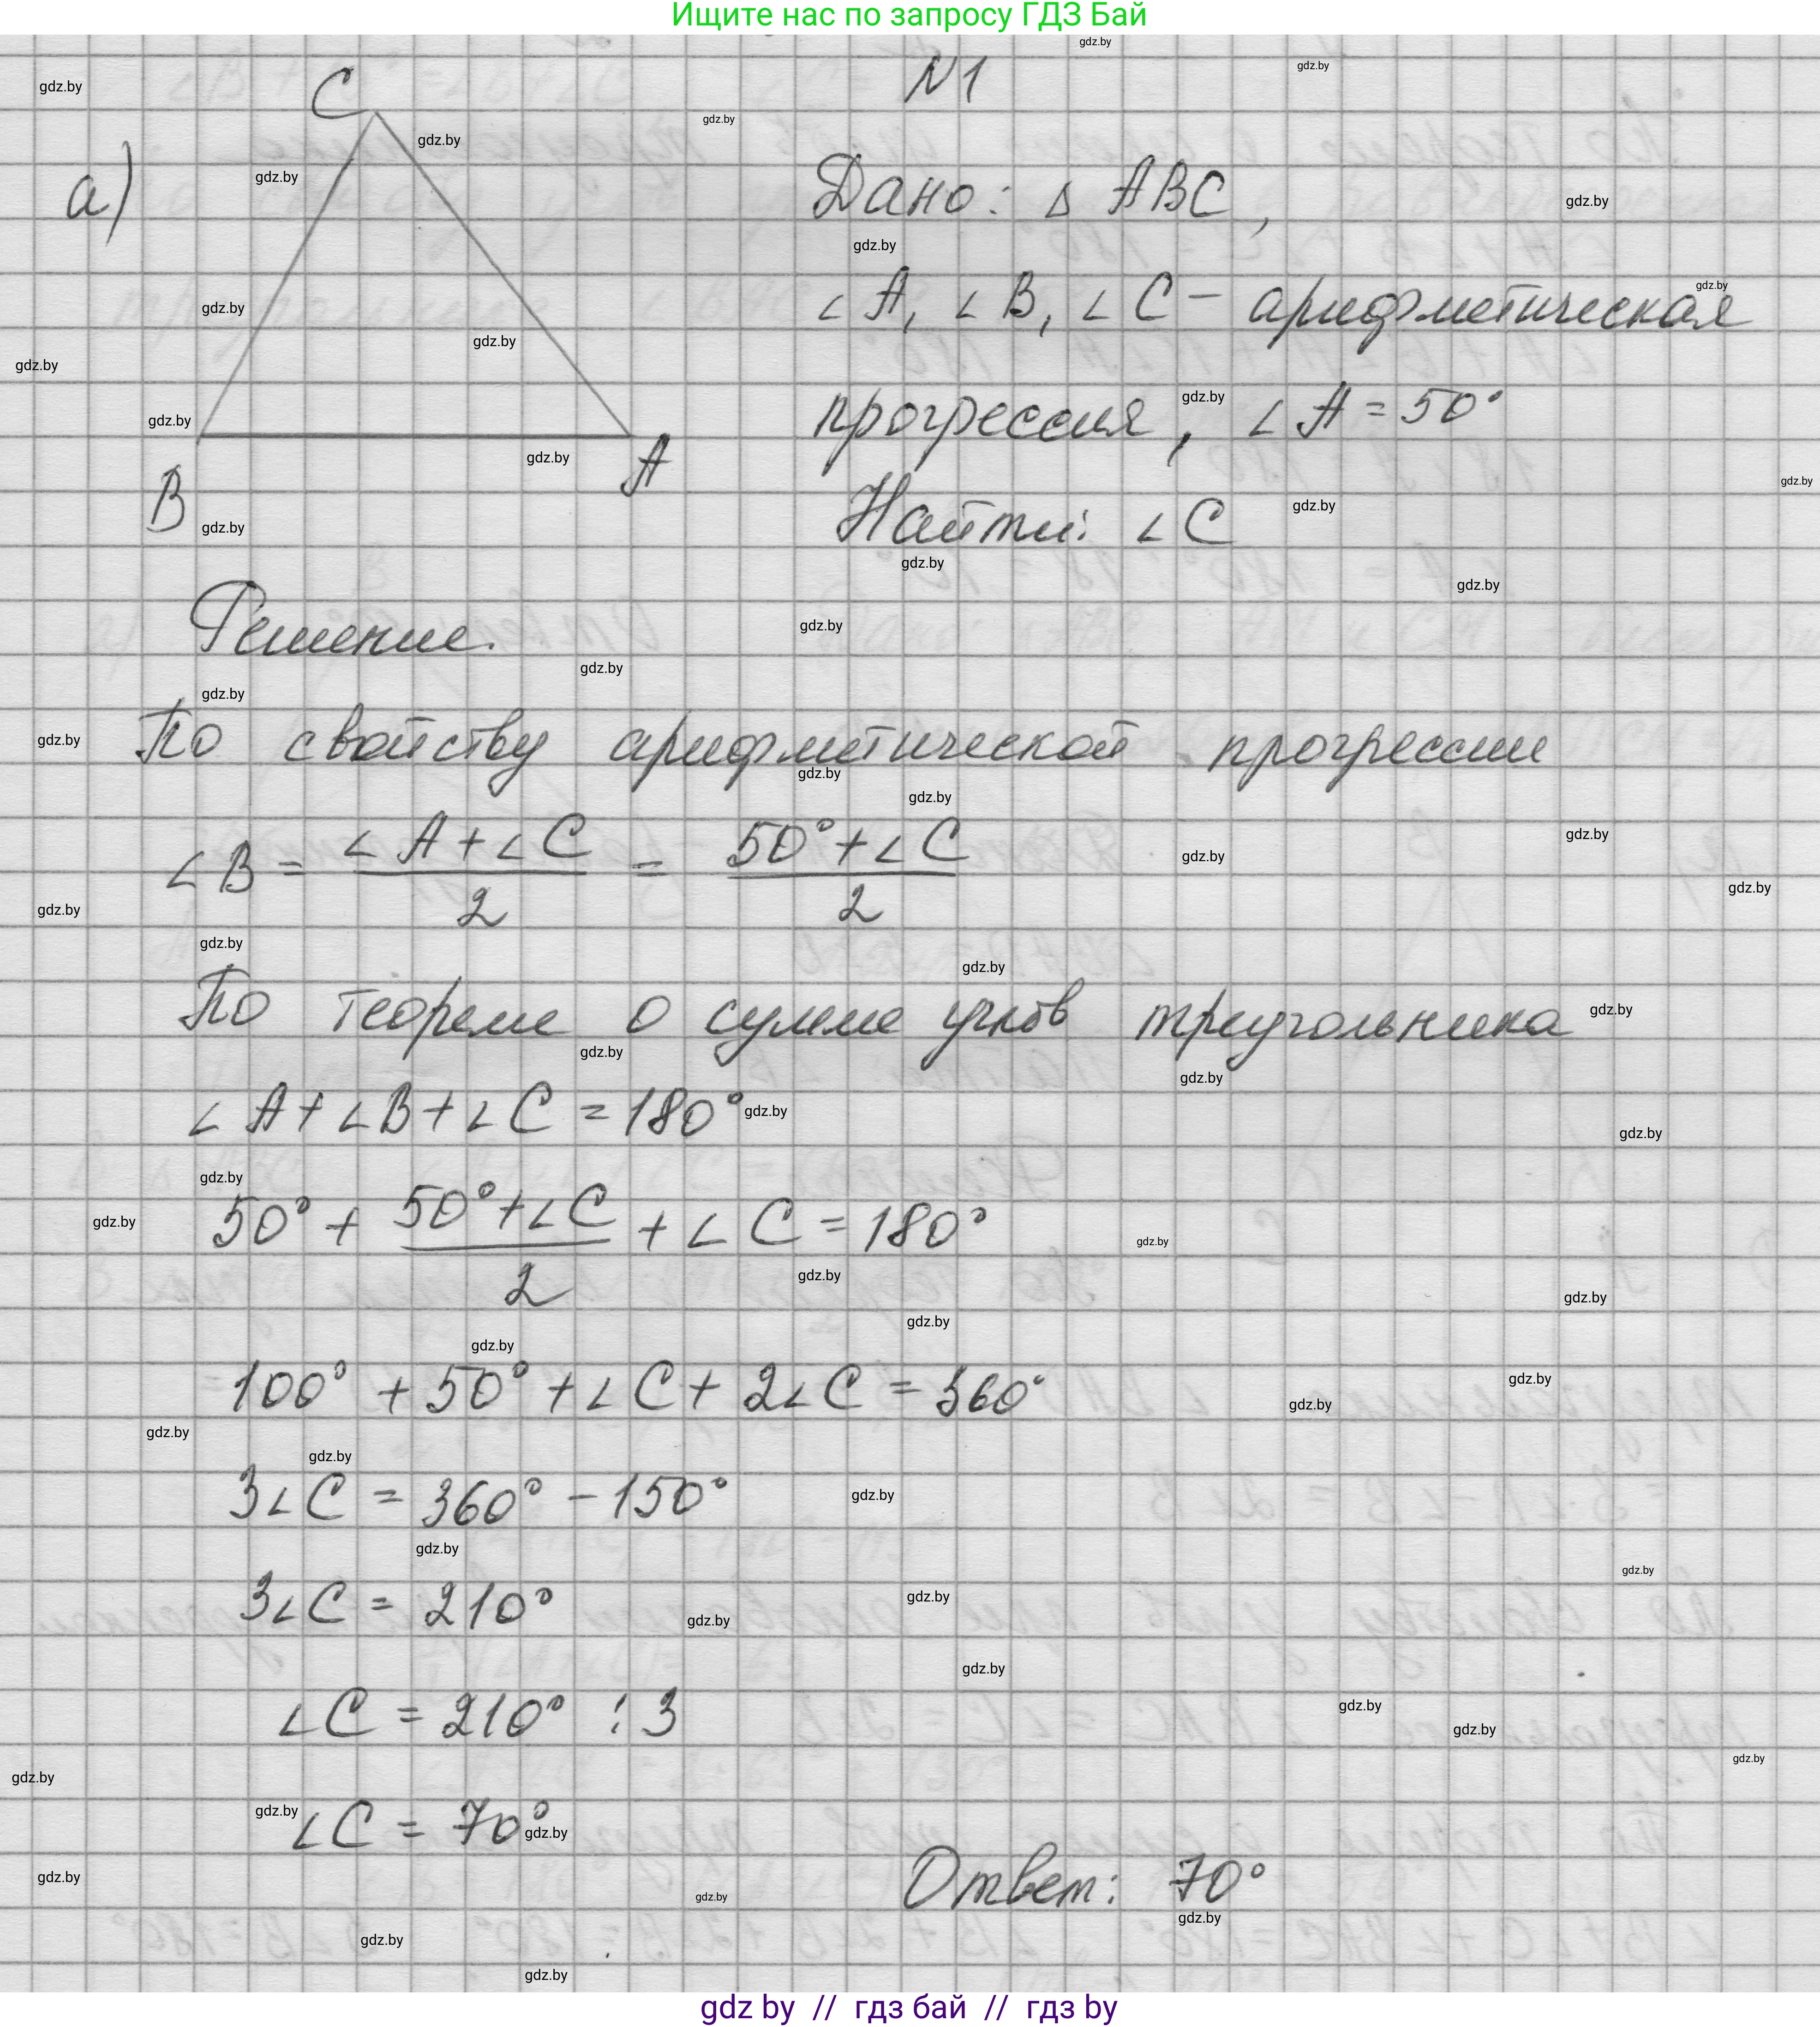 Ищите нас по запросу ГДЗ Бай
N1
C
а)
B
A
Дано: Δ ABC,
∠A, ∠B, ∠C – арифметическая
прогрессия, ∠A = 50°
Найти: ∠C
Решение.
По свойству арифметической прогрессии
∠B = (∠A + ∠C)/2 = (50° + ∠C)/2
По теореме о сумме углов треугольника
∠A + ∠B + ∠C = 180°
50° + (50° + ∠C)/2 + ∠C = 180°
100° + 50° + ∠C + 2∠C = 360°
3∠C = 360° – 150°
3∠C = 210°
∠C = 210° : 3
∠C = 70°
Ответ: 70°
gdz.by
gdz by // гдз бай // гдз by